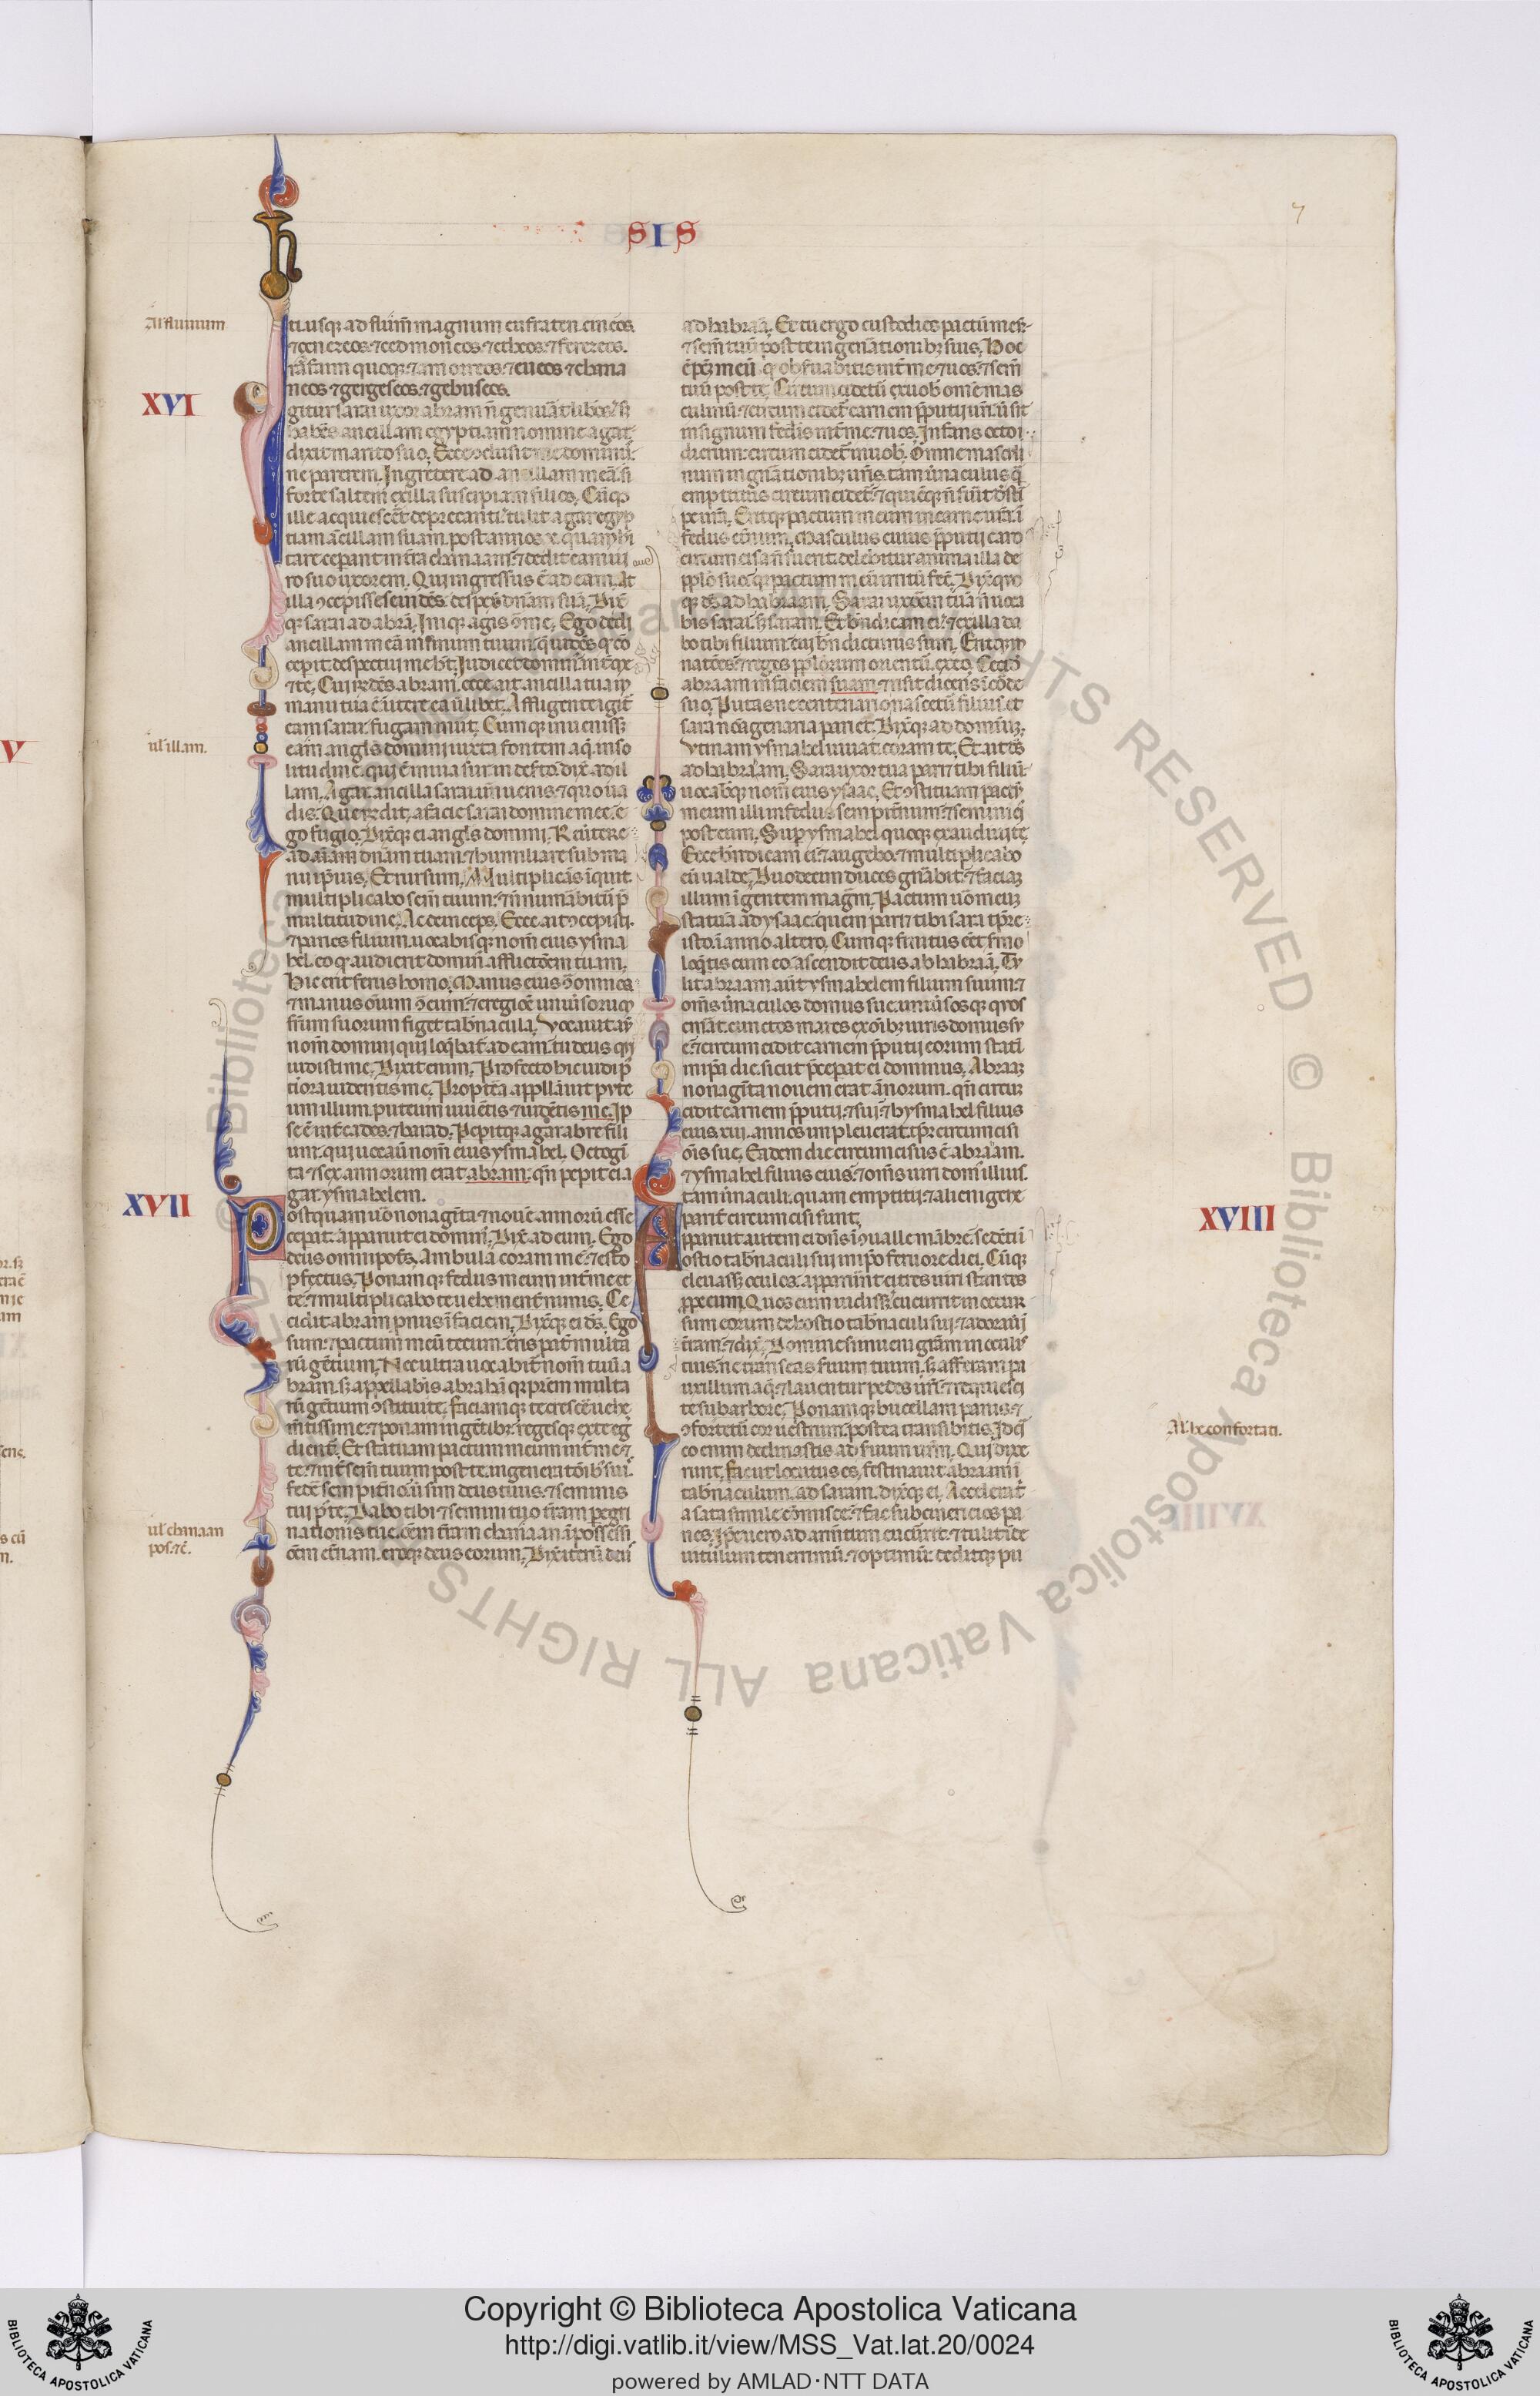 7
SIS
Al fluuium
ti. usqȝ ad fluuiū magnum eufraten. cineos.
⁊ cenezeos. ⁊ cedmoneos. ⁊ etheos. ⁊ ferezeos.
rafaim quoqȝ. ⁊ amorreos. ⁊ eueos ⁊ chana
neos ⁊ gergeseos. ⁊ gebuseos.
XVI
gitur sarai uxor abram n̄ genuāt libōs. sȝ
habēs ancillam egyptiam nomine agar.
dixit marito suo. Ecce ↄclusit me domin.
ne parerem. Ingredere ad ancillam meā. si
forte saltem ex illa suscipiam filios. Cūqȝ
ille acquiescēt deprecanti. tulit agar egyp
tiam ācillam suam. post annos .x. quā hi
tare ceperant in t̄ra chanaam. ⁊ dedit eam ui
ro suo uxorem. Qui ingressus ē ad eam. At
illa ↄcepisse se uidēs. despex̄ dnām suā. Dix̄
qȝ sarai ad abrā. Iniqȝ agis ↄ̄ me. Ego dedi
ancillam meā in sinum tuum. q̄ uidēs qȝ cō
ceperit. despectui me hȝ. Iudicet domin̄ int̄ me
⁊ te. Cui r̄dēs abram. ecce ait ancilla tua in
manu tua ē. utere ea ut libet. Affligente igit̄
eam sarai. fugam iniit. Cumqȝ inuenissȝ
ul' illam.
eam angl̄s domini iuxta fontem aq̄. in so
litudine. qui ē in uia sur in def̄to. dix̄ ad il
lam. Agar ancilla sarai. un̄ uenis. ⁊ quo ua
dis. Que r̄dit. a facie sarai domine mee. e
go fugio. Dix̄qȝ ei angl̄s domini. Reuertere
ad dnām tuam. ⁊ humiliare sub ma
nu ip̄ius. Et rursum. Multiplicās iquit
multiplicabo sem̄ tuum. ⁊ n̄ numābitur p̄
multitudine. Ac deinceps. Ecce. ait ↄcepisti.
⁊ paries filium. uocabisqȝ nom̄ eius ysma
hel. eo qȝ audierit domin̄ afflictōem tuam.
Hic erit ferus homo. Manus eius ↄ̄ omnes.
⁊ manus om̄ium ↄ̄ eum. ⁊ e regiōe uniūsorum
fr̄um suorum figet tab̄nacula. Vocauit aūt
nom̄ domini qui loq̄bat̄ ad eam. tu deus qui
uidisti me. Dixit enim. Profecto hic uidi pos
tiora uidentis me. Propt̄ea appllāuit pute
um illum. puteum uiuētis ⁊ uidētis me. Ip
se ē int̄ cades. ⁊ barad. Pepitqȝ agar abre fili
um. qui uocauit nom̄ eius ysmahel. Octogī
ta ⁊ sex annorum erat abram. qn̄ pepit ei a
gar ysmahelem.
XVII
Postquam uō nonagīta ⁊ nouē annorū esse
ceperat. apparuit ei domin̄. Dix̄ ad eum. Ego
deus omnipot̄s. Ambula coram me. ⁊ esto
ꝑfectus. Ponamqȝ fedus meum int̄ me et
te. ⁊ multiplicabo te uehement̄ nimis. Ce
cidit abram pnus ī faciem. Dix̄qȝ ei ds̄. Ego
sum. ⁊ pactum meū tecum. erisqȝ pat̄ multa
rū gētium. Nec ultra uocabit̄ nom̄ tuū a
bram. sȝ appellabis abrahā. qȝ pr̄em multa
rū gētium ↄstitui te. faciamqȝ te crescere uehe
mētissime. ⁊ ponam in gētibȝ. regesqȝ ex te eg
dient̄. Et statuam pactum meum int̄ me ⁊
te. ⁊ int̄ sem̄ tuum post te. in generatōibȝ suis.
fedē sempit̄no. ut sim deus tuus. ⁊ seminis
tui p̄ te. Dabo tibi ⁊ semini tuo t̄ram pegri
ul' chanaan
pos. ⁊c̄.
nationis tue. oēm t̄ram chanaan. ī possessi
oēm et̄nam. eroqȝ deus eorum. Dixit iterū deus
ad habraā. Et tu ergo custodies pactū meū.
⁊ sem̄ tuū post te in generationibȝ suis. Hoc
ē pactū meū. qȝ obseruabitis int̄ me ⁊ uos. ⁊ sem̄
tuū post te. Circumcidetur ex uobis om̄e mas
culinū. ⁊ circumcidetis carnem p̄putij ur̄i. ut sit
in signum federis int̄ me. ⁊ uos. Infans octo
dierum. circumcidet̄ in uobis. Omne masculi
num in gn̄ationibȝ ur̄is. tam ūnaculus qȝ
emptitius circumcidet̄. ⁊ quicūqȝ n̄ fūit de sti
pe ur̄a. Eritqȝ pactum meum in carne ur̄a ī
fedus et̄num. Masculus cuius p̄putij caro
circumcisa n̄ fuerit. delebitur anima illa de
pplo suo. qȝ pactum meū irritū fecit. Dix̄ quo
qȝ ds̄ ad habraam. Sarai uxorem tuā n̄ uoca
bis sarai. sȝ saram. Et bn̄dicam ei. ⁊ ex illa da
bo tibi filium. cui bn̄dicturus sum. Eritqȝ in
natōes. ⁊ reges pplorum orientur ex eo. Cecidit
abraam in faciem suam. ⁊ risit dicens ī corde
suo. Putasne centenario nascetur filius. et
sara nonagenaria pariet. Dix̄qȝ ad dominū.
Vtinam ysmahel uiuat coram te. Et ait ds̄
ad habraam. Sara uxor tua pariet tibi filiū.
uocabisqȝ nom̄ eius ysaac. Et ↄstituam pactū
meum illi in fedus sempit̄num. ⁊ semini eius
post eum. Super ysmahel quoqȝ exaudiui te.
Ecce bn̄dicam ei. ⁊ augebo. ⁊ multiplicabo
eū ualde. Duodecim duces gn̄abit. ⁊ faciam
illum ī gentem magnam. Pactum uō meum
statuā ad ysaac. quem pariet tibi sara tp̄re
isto. ī anno altero. Cumqȝ finitus ect̄ s̄mo
loq̄tis cum eo. ascendit deus ab habraā. Tu
lit abraam aūt ysmahelem filium suum. ⁊
om̄s ūnaculos domus sue. uniūsosqȝ quos
em̄at. cunctos mares ex oībȝ uiris domus su
e. ⁊ circumcidit carnem p̄putij eorum statī
in ip̄a die. sicut p̄ceperat ei dominus. Abraam
nonagīta nouem erat ānorum. qn̄ circum
cidit carnem p̄putij sui. ⁊ hysmahel filius
eius xiii. annos impleuerat. tp̄re circumcisi
ōis sue. Eadem die circumcisus ē abraam.
⁊ ysmahel filius eius. ⁊ om̄s uiri dom' illius.
tam ūnaculi. quam emptitij. ⁊ alienigene
parit̄ circumcisi sunt.
XVIII
Apparuit autem ei dn̄s ī ↄualle mābre. sedēti ī
ostio tab̄naculi sui in ip̄o feruore diei. Cūqȝ
eleuassȝ oculos. apparuerūt ei tres uiri stantes
prope eum. Quos cum uidissȝ. cucurrit in occur
sum eorum de hostio tab̄naculi sui. ⁊ adorauit ī
t̄ram. ⁊ dix̄. Domine si inueni gr̄am in oculis
tuis. ne transeas seruum tuum. sȝ afferam pa
uxillum aq̄. ⁊ lauentur pedes ur̄i. ⁊ requiesci
te sub arbore. Ponamqȝ bucellam panis. ⁊
Al. he. confortati.
ↄfortetur cor uestrum. postea transibitis. Idc̄
co enim declinastis ad seruum ur̄m. Qui dixe
runt. fac ut locutus es. festinauit abraam ī
tab̄naculum. ad saram. dix̄qȝ ei. Accelerat̄
a sata simile ↄmisce. ⁊ fac subcinericios pa
nes. Ip̄e uero ad arm̄tum cucurrit. ⁊ tulit īde
uitulum tenerrimū. ⁊ optimū. deditqȝ pu
Copyright © Biblioteca Apostolica Vaticana
http://digi.vatlib.it/view/MSS_Vat.lat.20/0024
powered by AMLAD·NTT DATA
© Biblioteca Apostolica Vaticana ALL RIGHTS RESERVED
BIBLIOTECA APOSTOLICA VATICANA
BIBLIOTECA APOSTOLICA VATICANA